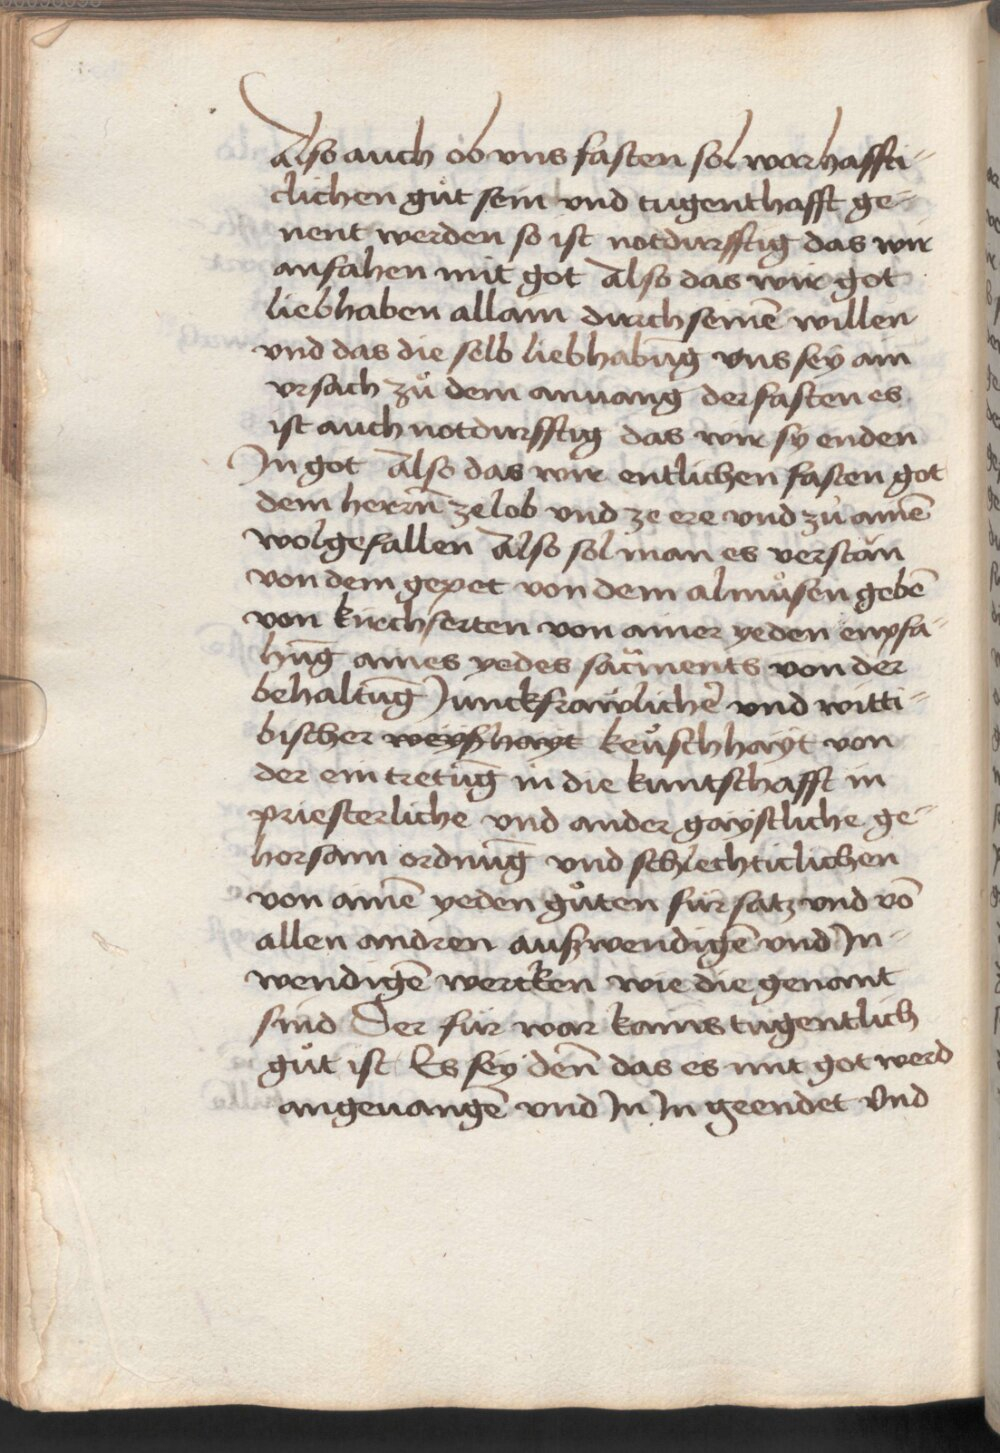 Also auch ob vns fasten sol warhaffti-
clichen gůt sein vnd tugenthafft ge-
nent werden so ist notdurfftig das wir
anfahen mit got Also das wir got
liebhaben allain durch seinē willen
vnd das die selb liebhabūg vns sey ain
vrsach zů dem anuang der fasten es
ist auch notdurfftig das wir sy enden
In got Also das wir entlichen fasten got
dem herrn̄ ze lob vnd ze ere vnd zů ainē
wolgefallen Also sol man es verstan
von dem gepet von dem almůsen gebē
von kirchferten von ainer yeden enpfa-
hūg aines yedes sacments von der
behaltūg Junckfrawlicher vnd witti-
bischer weyßhayt keůschhayt von
der eintretūg in die kuntschafft in
priesterliche vnd ander gaystliche ge-
horsam ordnūg vnd schlechticlichen
von ainē yeden gůten fürsatz vnd vō
allen andren außwendigē vnd In-
wendigē wercken wie die genant
sind Der für war kains tugentlich
gůt ist Es sey den̄ das es mit got werd
angeuangē vnd In In geendet Vnd